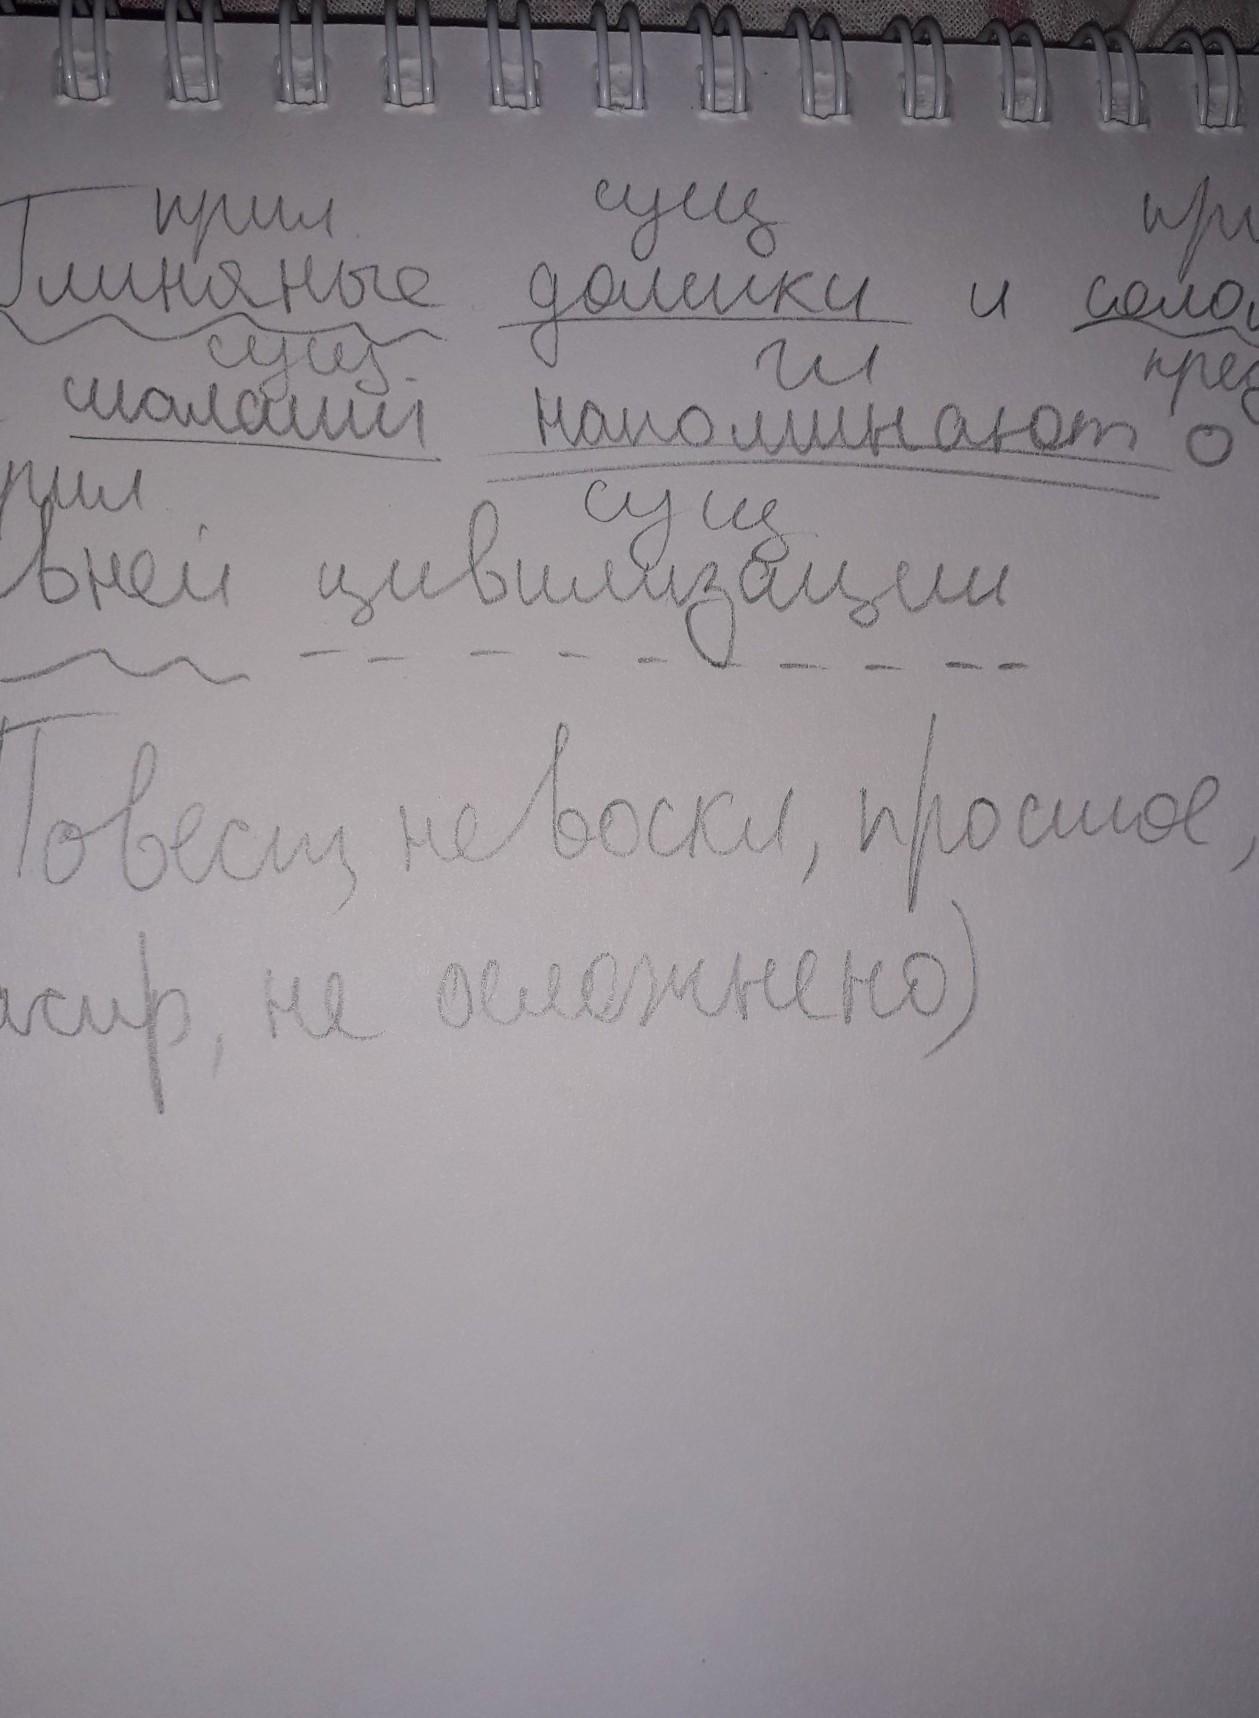 прил сущ при
Глиняные домики и солом
сущ. гл пред
шалаши напоминают о
рил сущ
вней цивилизации
Повест, невоскл, простое,
аспр, не осложнено)